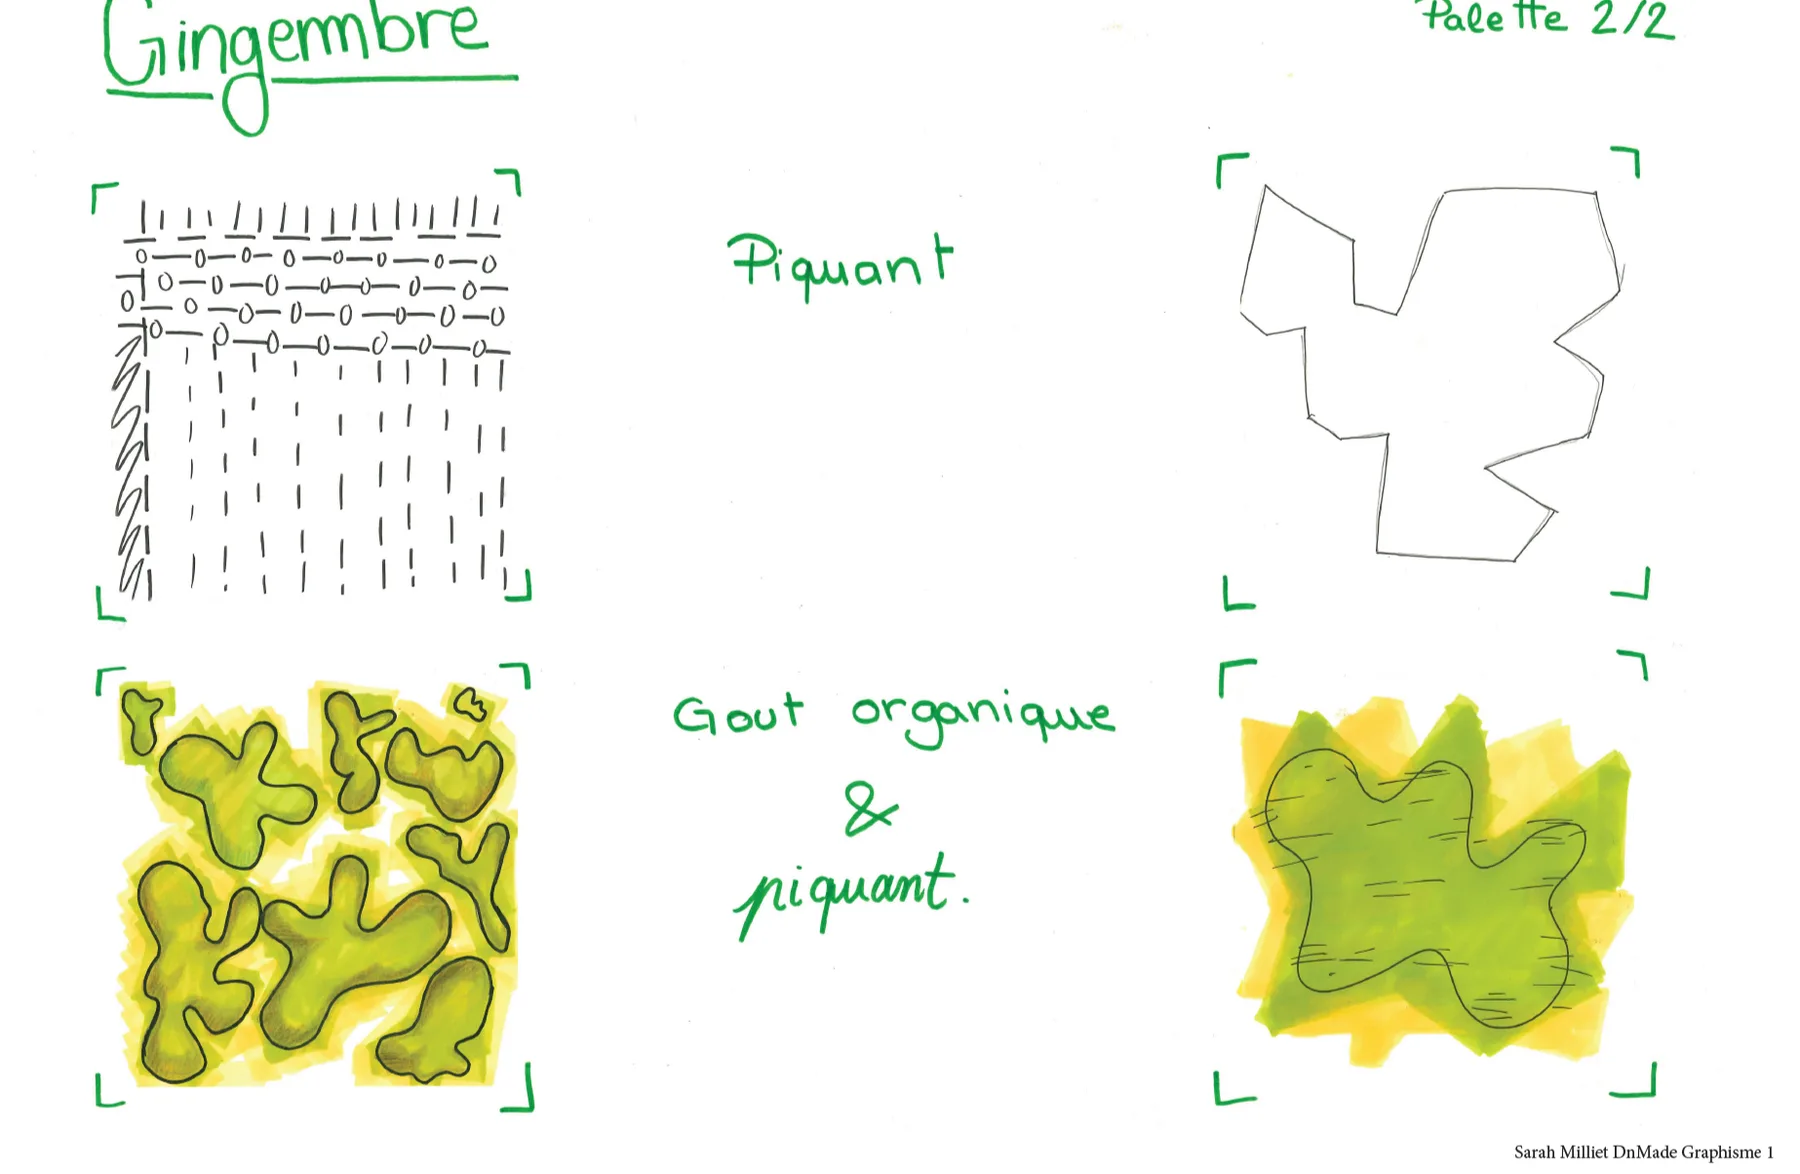 Gingembre
Palette 2/2
Piquant
Gout organique
&
piquant.
Sarah Milliet DnMade Graphisme 1